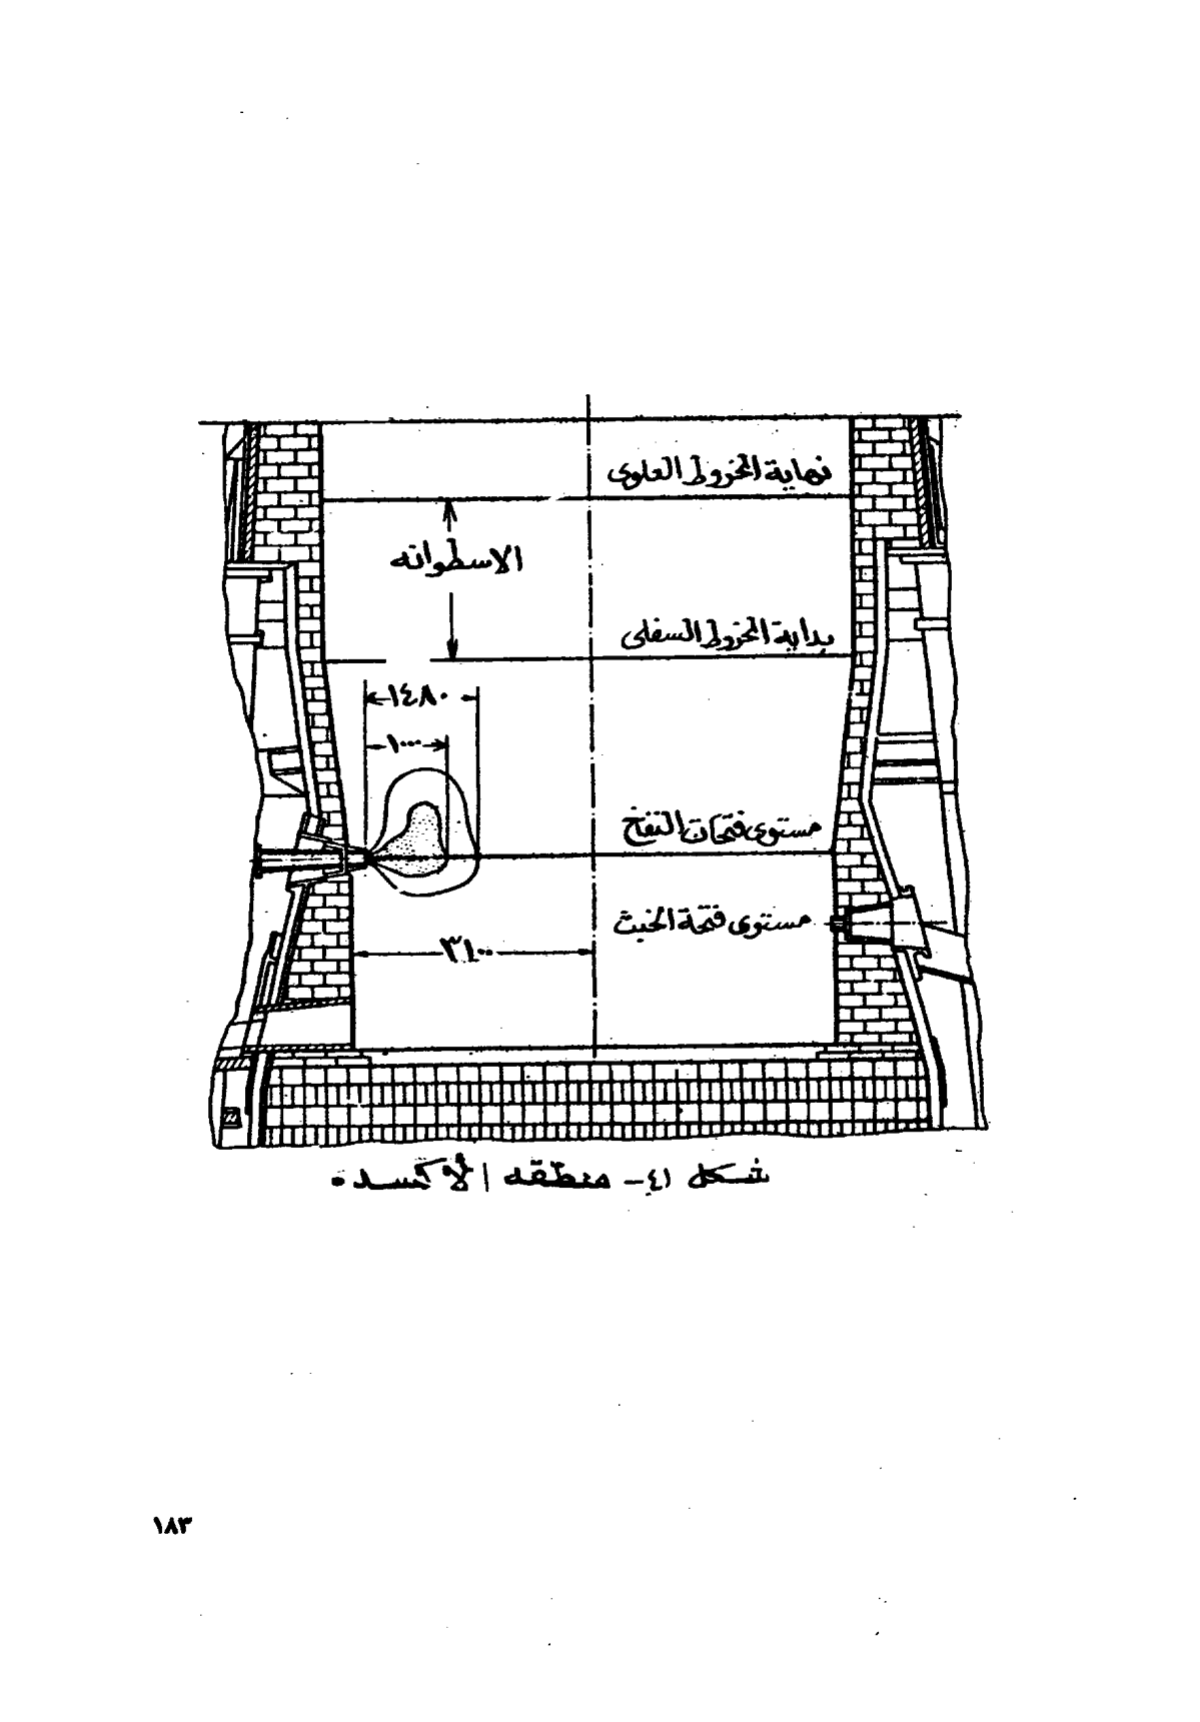 نهاية المخروط العلوى
الاسطوانه
بداية المخروط السفلى
١٤٨٠
١٠٠٠
مستوى فتحات النفخ
مستوى فتحة الخبث
٣١٠٠
شكل ٤١ - منطقه الأكسده
١٨٣